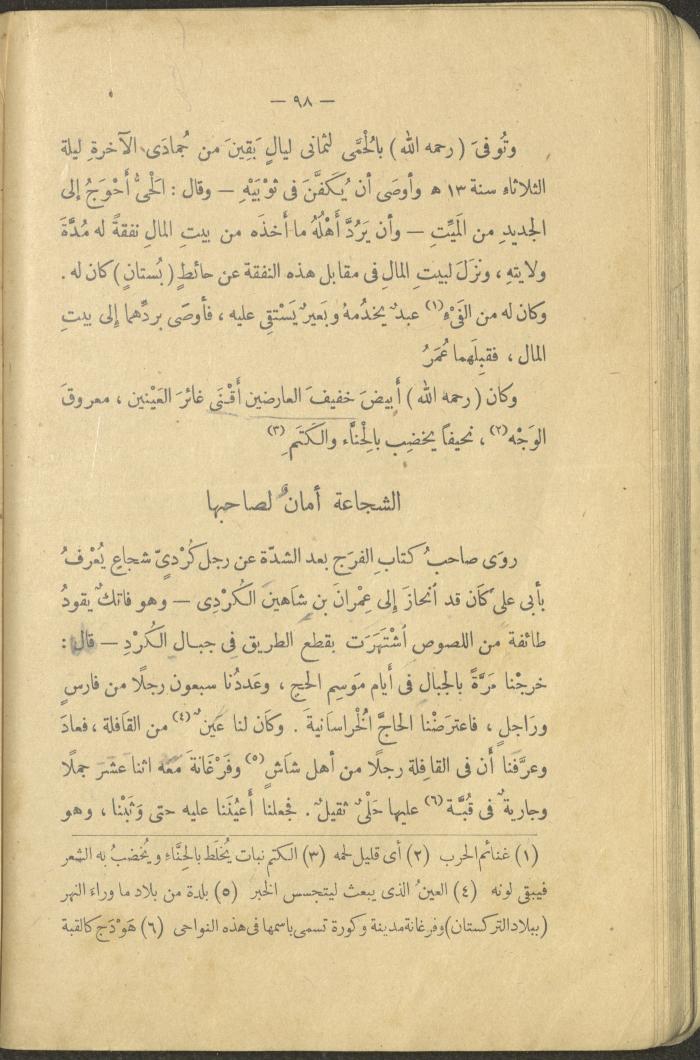 — ٩٨ —
وتُوفىَ (رحمه الله) بالْحُمَّى لثمانى ليالٍ بَقِينَ من جُمادَى الآخرةِ ليلة
الثلاثاءِ سنة ١٣ ھ وأوصَى أن يُكَفَّنَ فى ثوْبَيْهِ — وقال : الْحىُّ أَحْوَجُ إلى
الجديدِ من الَميِّتِ — وأن يَرُدَّ أَهْلُهُ ما أَخذَه من بيتِ المالِ نفقةً له مُدَّةَ
ولايتهِ ، ونزَلَ لبيتِ المالِ فى مقابل هذه النفقة عن حائطٍ (بُستانٍ) كان له .
وكان له من الفَىْءِ (١) عبدٌ يخدُمهُ وبَعيرٌ يَسْتقِى عليه ، فأوصَى بردِّهما إلى بيتِ
المال ، فقبِلَهما عُمَرُ
وكان (رحمه الله) أبيضَ خفيفَ العارضين أَقْنَى غائرَ العَيْنين ، معروقَ
الوَجْه (٢) ، نحيفاً يخضِب بالِحْنَّاء والكَتَمِ (٣)
الشجاعة أمانٌ لصاحبها
روَى صاحبُ كتابِ الفرَج بعد الشدّة عن رجل كُرْدىّ شجاعٍ يُعْرفُ
بأبى علىّ كاَن قد اُنحازَ إلى عِمْران بن شاَهينَ الكُرْدِى — وهو فاتكٌ يقودُ
طائفة من اللصوص اُشْتهَرَت بقطع الطريق فى جبال الكُرْدِ — قال :
خرجْنا مَرَّةً بالجبال فى أيام مَوسِم الحج ، وعَددْنا سبعون رجلًا من فارسٍ
وراجلٍ ، فاعترَضْنا الحاجَّ الْخُراسانيةَ . وكاَن لنا عَينٌ (٤) من القَافلة ، فعادَ
وعرَّفنا أن فى القافِلة رجلًا من أهل شاَش (٥) وفَرْغانةَ مَعَه اثنا عشَر جملًا
وجاريةٌ فى قُبَّة (٦) عليها حَلْىٌ ثقيلٌ . فجعلنْا أَعيُنَنا عليه حتى وَثَبْنا ، وهو
(١) غنائم الحرب (٢) أى قليل لحمه (٣) الكتم نبات يُخلَط بالِحنَّاءِ ويُخضبُ به الشعر
فيبقى لونه (٤) العينُ الذى يبعث ليتجسس الخبر (٥) بلدة من بلاد ما وراء النهر
(ببلاد التركستان) وفرغانة مدينة وكورة تسمى باسمها فى هذه النواحى (٦) هَوْدَج كالقبة